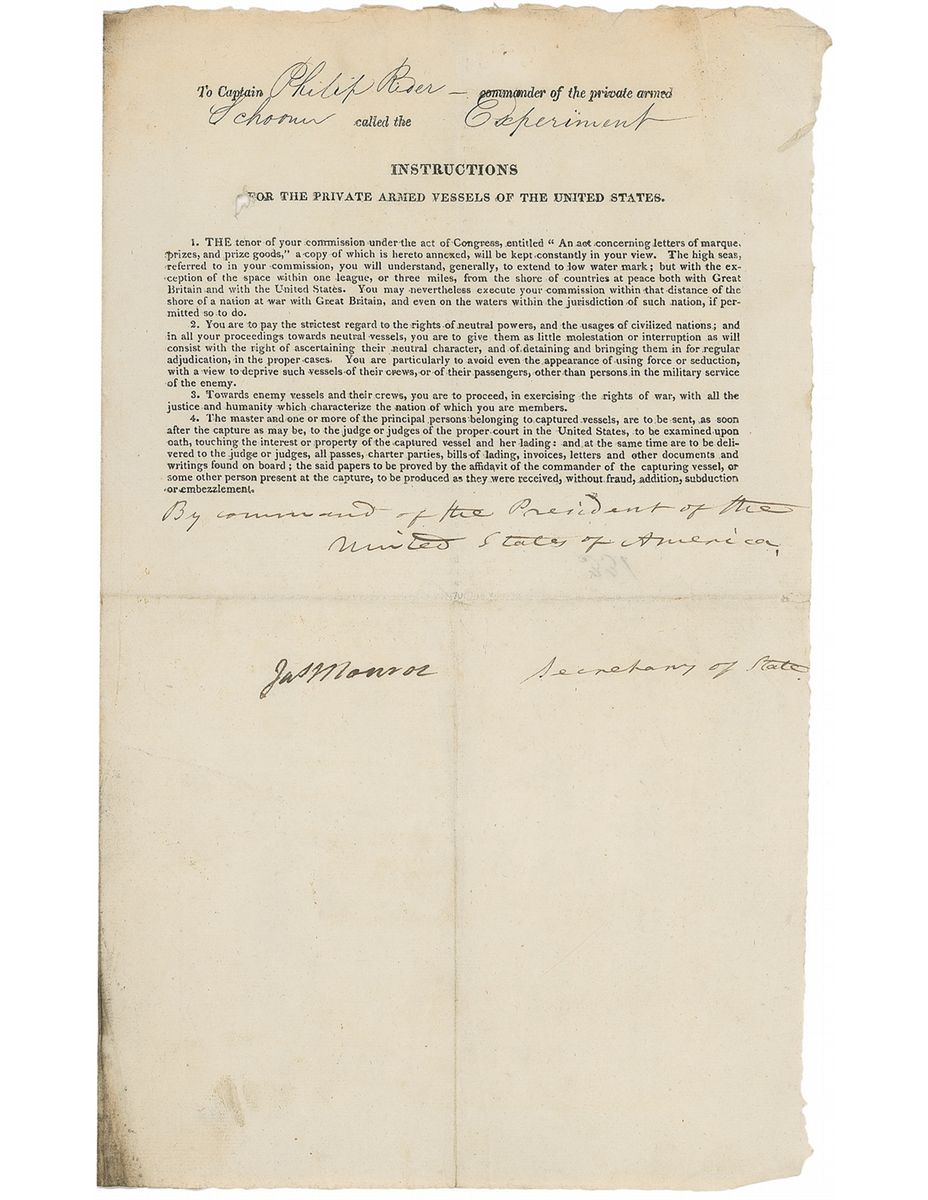 To Captain Philip Rider — commander of the private armed
Schooner called the Experiment
INSTRUCTIONS
FOR THE PRIVATE ARMED VESSELS OF THE UNITED STATES.
1. THE tenor of your commission under the act of Congress, entitled “ An act concerning letters of marque,
prizes, and prize goods,” a copy of which is hereto annexed, will be kept constantly in your view. The high seas,
referred to in your commission, you will understand, generally, to extend to low water mark ; but with the ex-
ception of the space within one league, or three miles, from the shore of countries at peace both with Great
Britain and with the United States. You may nevertheless execute your commission within that distance of the
shore of a nation at war with Great Britain, and even on the waters within the jurisdiction of such nation, if per-
mitted so to do.
2. You are to pay the strictest regard to the rights of neutral powers, and the usages of civilized nations ; and
in all your proceedings towards neutral vessels, you are to give them as little molestation or interruption as will
consist with the right of ascertaining their neutral character, and of detaining and bringing them in for regular
adjudication, in the proper cases. You are particularly to avoid even the appearance of using force or seduction,
with a view to deprive such vessels of their crews, or of their passengers, other than persons in the military service
of the enemy.
3. Towards enemy vessels and their crews, you are to proceed, in exercising the rights of war, with all the
justice and humanity which characterize the nation of which you are members.
4. The master and one or more of the principal persons belonging to captured vessels, are to be sent, as soon
after the capture as may be, to the judge or judges of the proper court in the United States, to be examined upon
oath, touching the interest or property of the captured vessel and her lading : and at the same time are to be deli-
vered to the judge or judges, all passes, charter parties, bills of lading, invoices, letters and other documents and
writings found on board ; the said papers to be proved by the affidavit of the commander of the capturing vessel, or
some other person present at the capture, to be produced as they were received, without fraud, addition, subduction
or embezzlement.
By command of the President of the
United States of America.
Jas Monroe Secretary of State